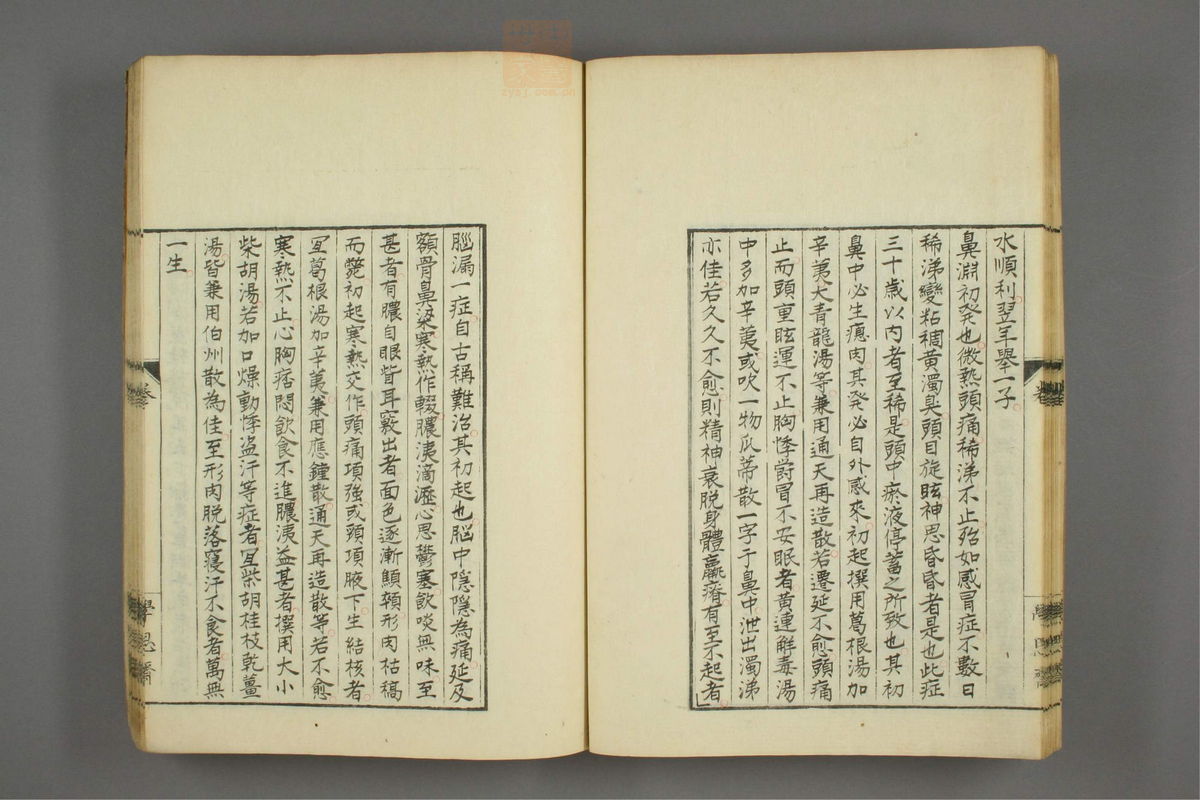 水順利翌年舉一子
鼻淵初発也微熱頭痛稀涕不止殆如感冒症不數日
稀涕變粘稠黃濁臭頭目旋眩神思昏昏者是也此症
三十歲以内者至稀是頭中瘀液停蓄之所致也其初
鼻中必生瘜肉其発必自外感來初起撰用葛根湯加
辛荑大青龍湯等兼用通天再造散若遷延不愈頭痛
止而頭重眩運不止胸悸欝冒不安眠者黃連解毒湯
中多加辛荑或吹一物瓜蒂散一字于鼻中泄出濁涕
亦佳若久久不愈則精神衰脱身體羸瘠有至不起者
腦漏一症自古稱難治其初起也脳中隱隱為痛延及
額骨鼻梁寒熱作輟膿洟滴瀝心思欝塞飲啖無味至
甚者有膿自眼眥耳竅出者面色逐漸顦顇形肉枯槁
而斃初起寒熱交作頭痛項強或頸項腋下生結核者
宜葛根湯加辛荑兼用應鐘散通天再造散等若不愈
寒熱不止心胸痞悶飲食不進膿洟益甚者撰用大小
柴胡湯若加口燥動悸盗汗等症者宜柴胡桂枝乾薑
湯皆兼用伯州散為佳至形肉脱落寢汗不食者萬無
一生
學思齋
zysj.com.cn